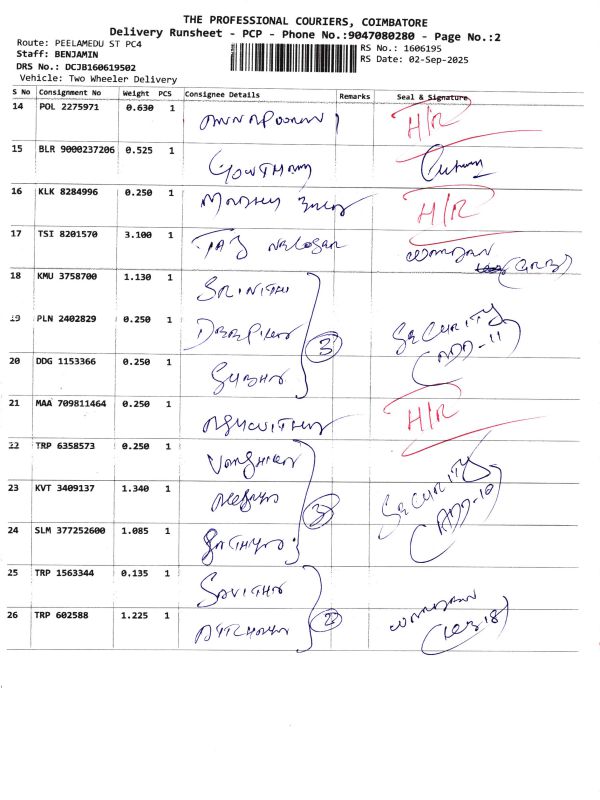 THE PROFESSIONAL COURIERS, COIMBATORE
Delivery Runsheet - PCP - Phone No.:9047080280 - Page No.:2
Route: PEELAMEDU ST PC4
RS No.: 1606195
Staff: BENJAMIN
RS Date: 02-Sep-2025
DRS No.: DCJB160619502
Vehicle: Two Wheeler Delivery
S No Consignment No Weight PCS Consignee Details Remarks Seal & Signature
14 POL 2275971 0.630 1 H/R
15 BLR 9000237206 0.525 1 GOWTHAM
16 KLK 8284996 0.250 1 H/R
17 TSI 8201570 3.100 1 TAJ
18 KMU 3758700 1.130 1 SRINITHI
19 PLN 2402829 0.250 1 3 SECURITY
20 DDG 1153366 0.250 1 (ADD-11)
21 MAA 709811464 0.250 1 H/R
22 TRP 6358573 0.250 1
23 KVT 3409137 1.340 1 3 SECURITY
24 SLM 377252600 1.085 1 (ADD-10)
25 TRP 1563344 0.135 1 SAVITHA
26 TRP 602588 1.225 1 2